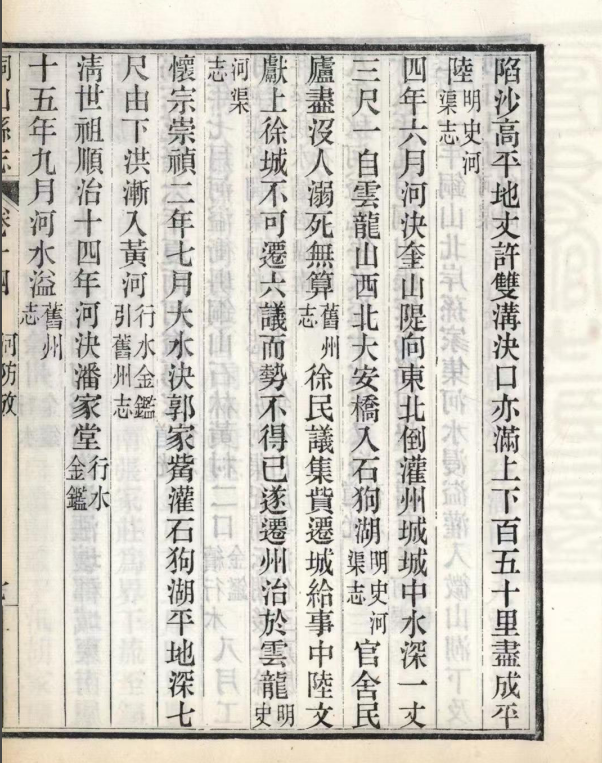 陷沙高平地丈許雙溝決口亦滿上下百五十里盡成平
陸明史河渠志
四年六月河決奎山隄向東北倒灌州城城中水深一丈
三尺一自雲龍山西北大安橋入石狗湖明史河渠志官舍民
廬盡沒人溺死無算舊州志徐民議集貲遷城給事中陸文
獻上徐城不可遷六議而勢不得已遂遷州治於雲龍明史
河渠志
懷宗崇禎二年七月大水決郭家觜灌石狗湖平地深七
尺由下洪漸入黃河行水金鑑引舊州志
淸世祖順治十四年河決潘家堂行水金鑑
十五年九月河水溢舊州志
銅山縣志 卷十四 河防攷